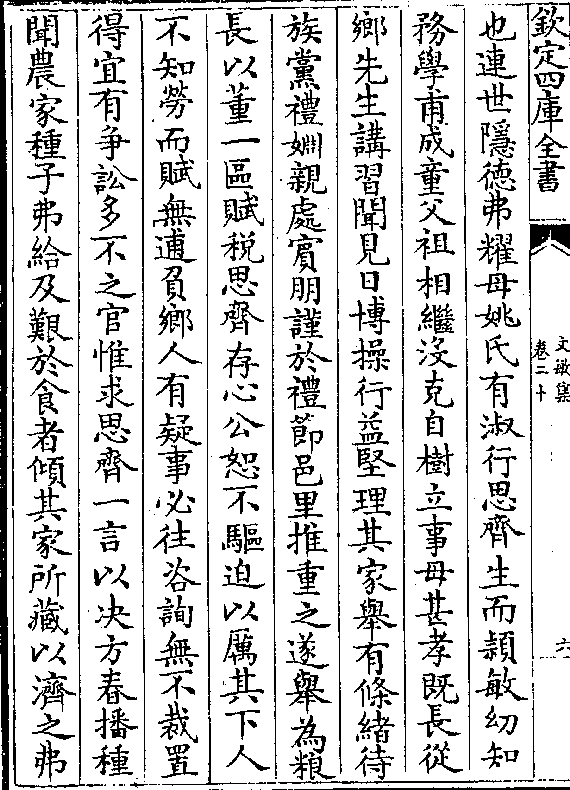 欽定四庫全書
文敏集
卷二十
六
也連世隱德弗耀母姚氏有淑行思齊生而頴敏幼知
務學甫成童父祖相繼沒克自樹立事母甚孝既長從
鄉先生講習聞見日博操行益堅理其家舉有條緒待
族黨禮婣親處賓朋謹於禮節邑里推重之遂舉為糧
長以董一區賦税思齊存心公恕不驅迫以厲其下人
不知勞而賦無逋負鄉人有疑事必往咨詢無不裁置
得宜有争訟多不之官惟求思齊一言以决方春播種
聞農家種子弗給及艱於食者傾其家所藏以濟之弗